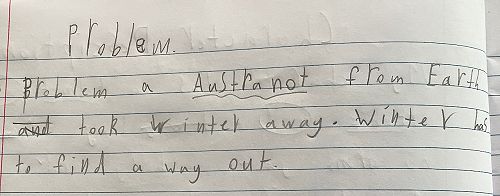 Problem.
Problem a Austranot from Earth
and took Winter away. Winter has
to find a way out.